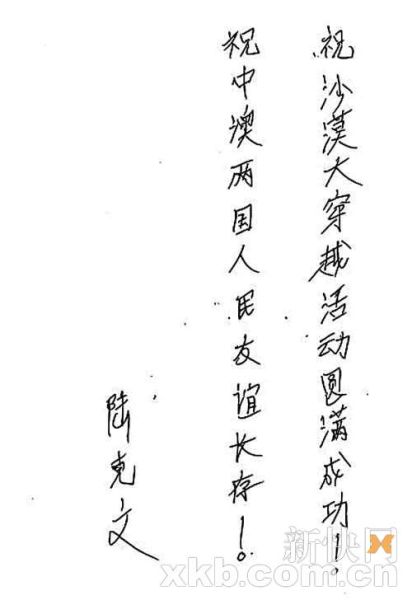 祝沙漠大穿越活动圆满成功！
祝中澳两国人民友谊长存！
陆克文
新快网
xkb.com.cn